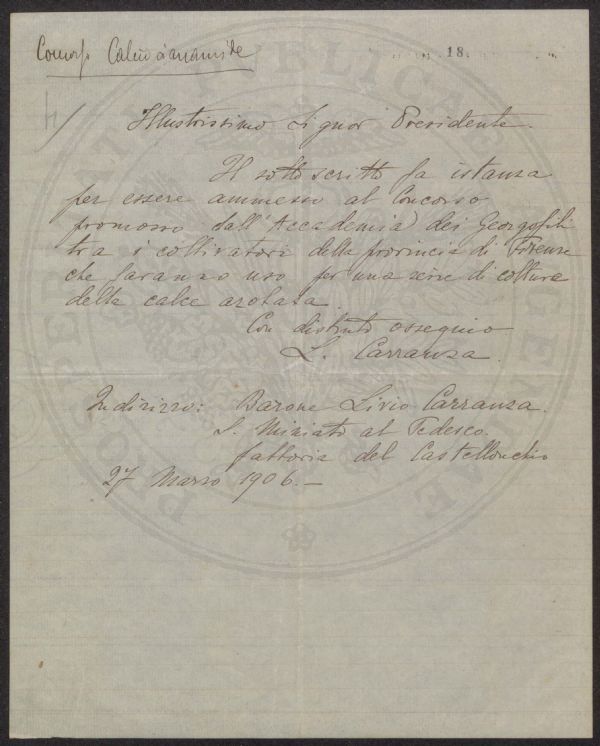 Concorso Calciocianamide
18
Illustrissimo Signor Presidente.
Il sottoscritto fa istanza
per essere ammesso al Concorso
promosso dall'Accademia dei Georgofili
tra i coltivatori della provincia di Firenze
che faranno uso per una serie di colture
della calce azotata.
Con distinto ossequio
L. Carranza.
Indirizzo: Barone Livio Carranza.
S. Miniato al Tedesco
fattoria del Castellonchio
27 Marzo 1906. –
PUBLICAE
PROSPERITATI